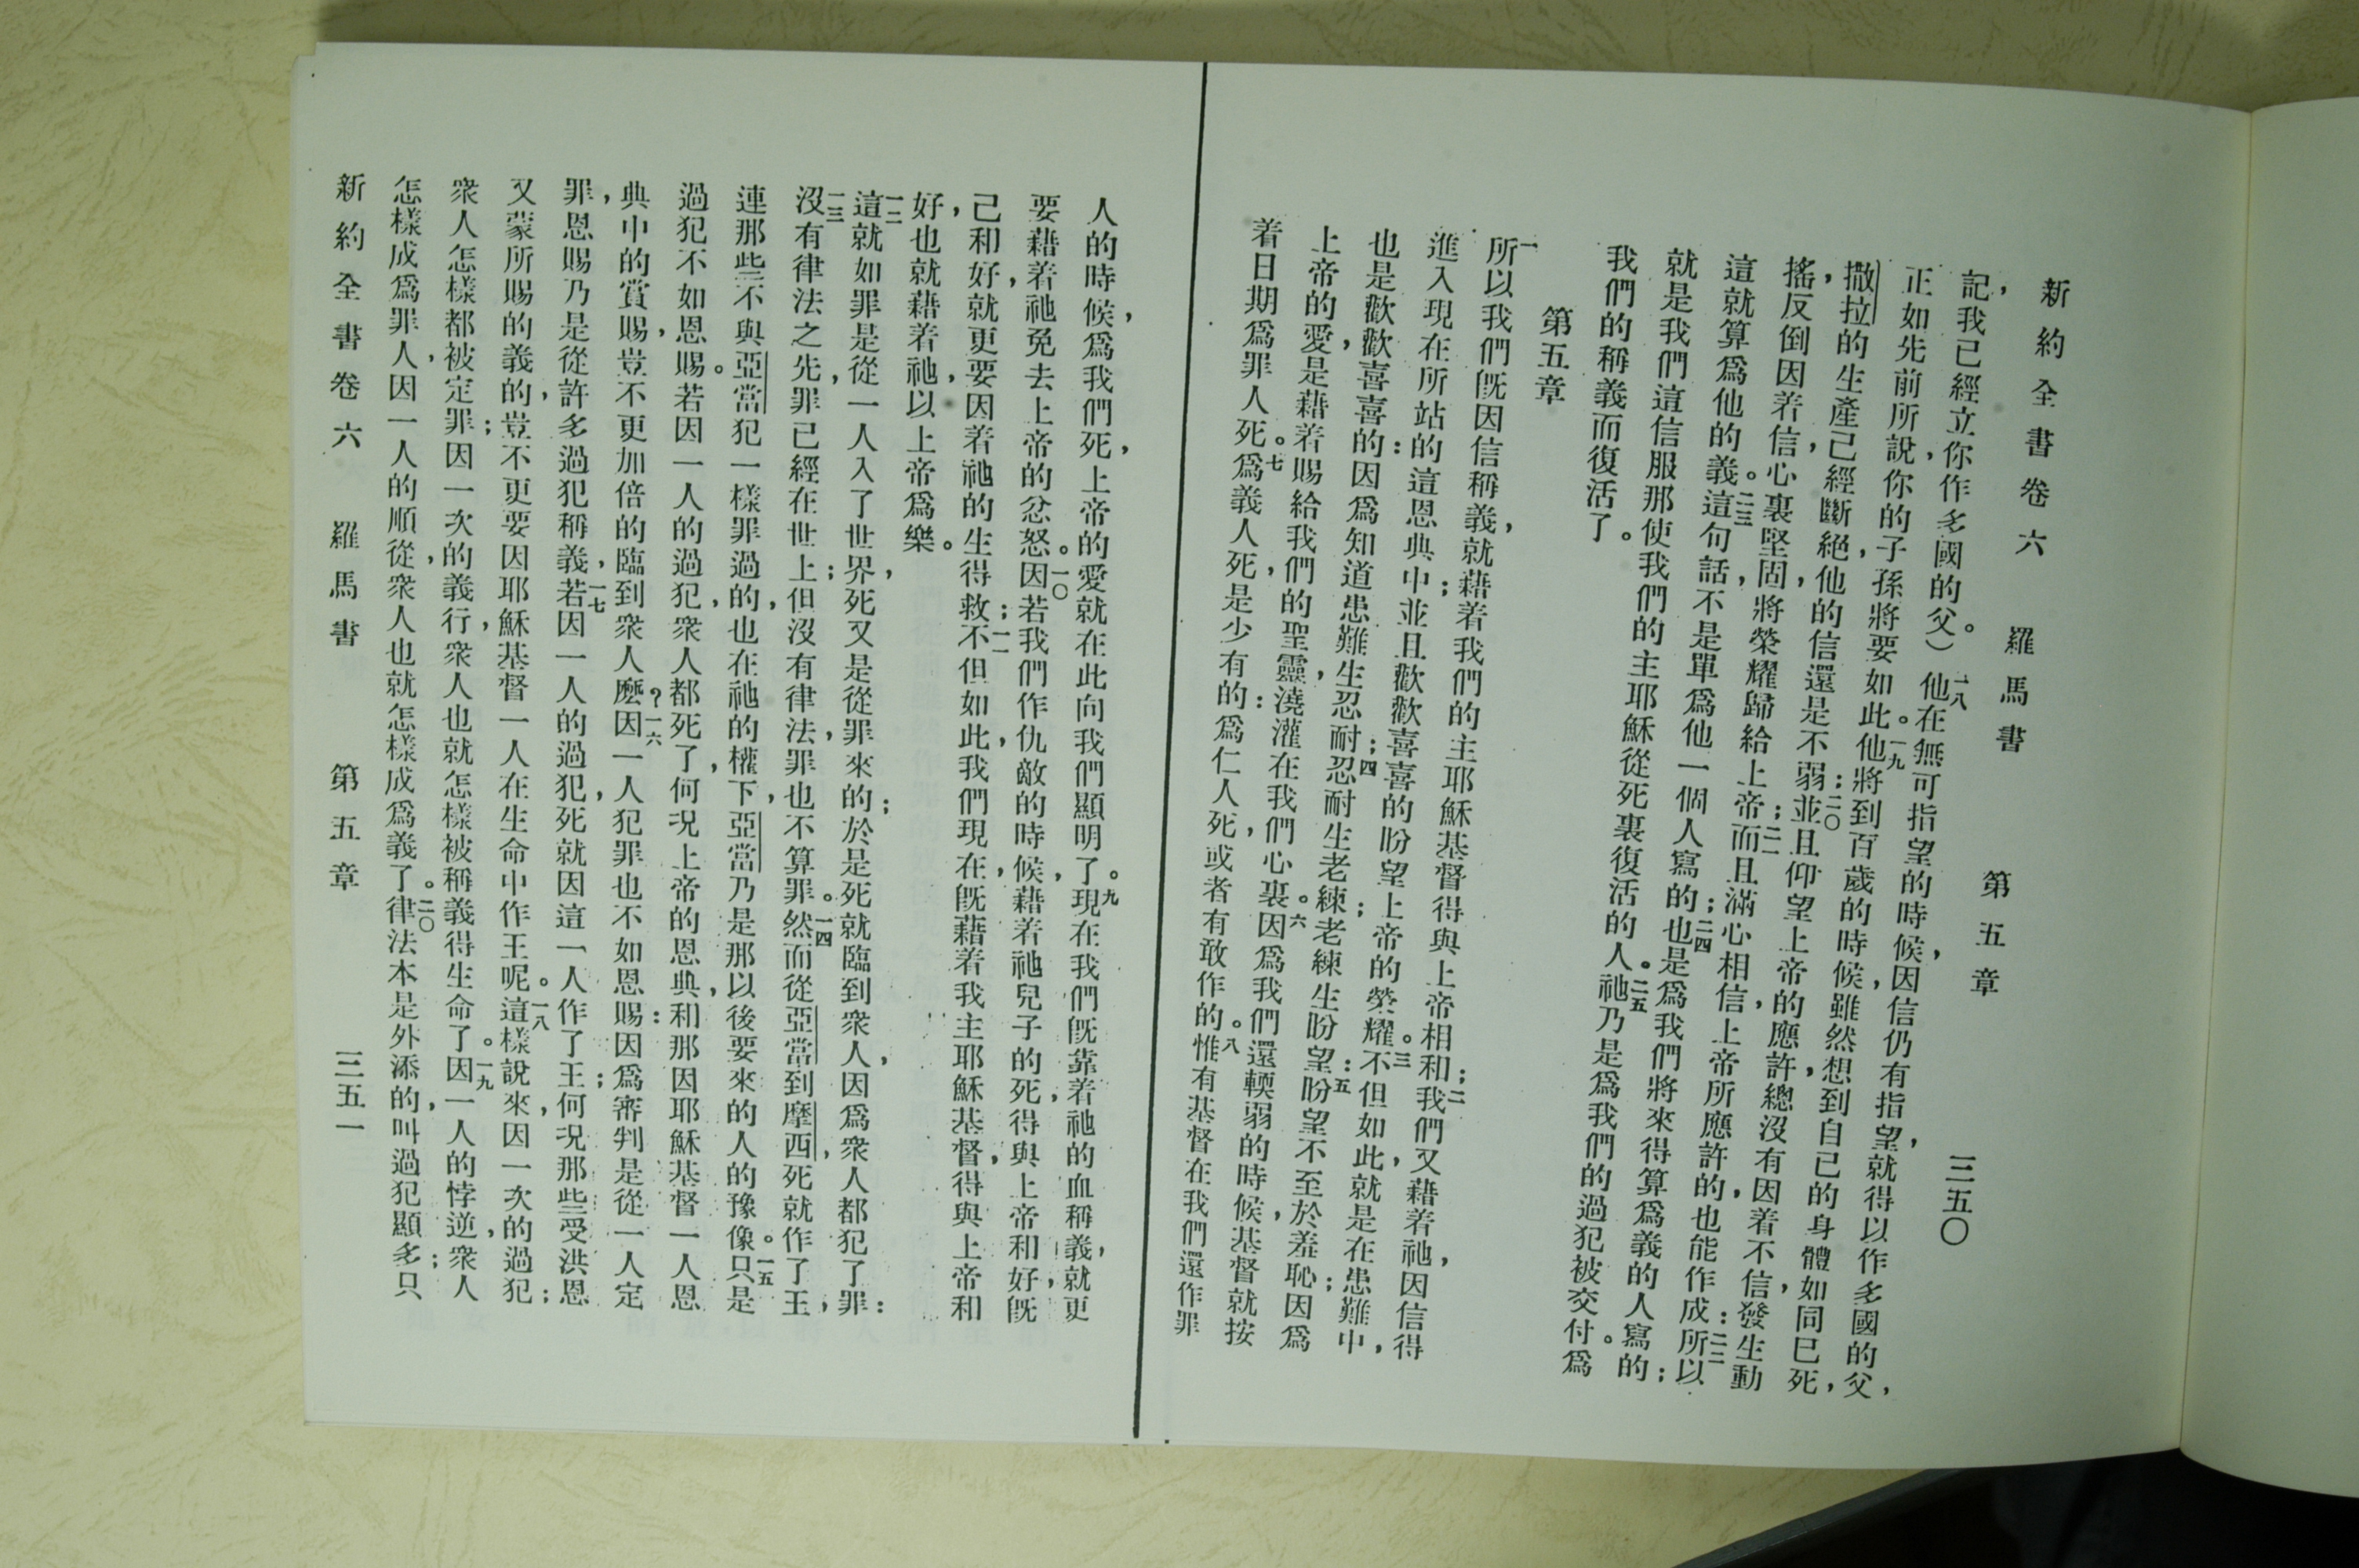 新約全書卷六 羅馬書 第五章 三五〇
記,我已經立你作多國的父。)一八他在無可指望的時候,因信仍有指望,就得以作多國的父,
正如先前所說,你的子孫將要如此。一九他將到百歲的時候,雖然想到自已的身體如同已死,
撒拉的生產已經斷絕,他的信還是不弱;二〇並且仰望上帝的應許,總沒有因着不信,發生動
搖,反倒因着信,心裏堅固,將榮耀歸給上帝;二一而且滿心相信,上帝所應許的,也能作成:二二所以
這就算爲他的義。二三這句話,不是單爲他一個人寫的;二四也是爲我們將來得算爲義的人寫的;
就是我們這信服那使我們的主耶穌從死裏復活的人。二五祂乃是爲我們的過犯被交付。爲
我們的稱義而復活了。
第五章
一所以我們旣因信稱義,就藉着我們的主耶穌基督得與上帝相和;二我們又藉着祂,因信得
進入現在所站的這恩典中;並且歡歡喜喜的盼望上帝的榮耀。三不但如此,就是在患難中,
也是歡歡喜喜的:因爲知道患難生忍耐;四忍耐生老練;老練生盼望:五盼望不至於羞恥;因爲
上帝的愛,是藉着賜給我們的聖靈,澆灌在我們心裏。六因爲我們還輭弱的時候,基督就按
着日期爲罪人死。七爲義人死,是少有的:爲仁人死,或者有敢作的。八惟有基督在我們還作罪
人的時候,爲我們死,上帝的愛就在此向我們顯明了。九現在我們旣靠着祂的血稱義,就更
要藉着祂,免去上帝的忿怒。一〇因若我們作仇敵的時候,藉着祂兒子的死,得與上帝和好,旣
己和好,就更要因着祂的生得救;一一不但如此,我們現在,旣藉着我主耶穌基督,得與上帝和
好,也就藉着祂,以上帝爲樂。
一二這就如罪是從一人入了世界,死又是從罪來的;於是死就臨到衆人,因爲衆人都犯了罪:
一三沒有律法之先,罪已經在世上;但沒有律法,罪也不算罪。一四然而從亞當到摩西,死就作了王,
連那些不與亞當犯一樣罪過的,也在祂的權下,亞當乃是那以後要來的人的豫像。一五只是
過犯不如恩賜。若因一人的過犯,衆人都死了,何况上帝的恩典,和那因耶穌基督一人恩
典中的賞賜,豈不更加倍的臨到衆人麽?一六因一人犯罪也不如恩賜:因爲審判是從一人定
罪,恩賜乃是從許多過犯稱義,一七若因一人的過犯,死就因這一人作了王;何况那些受洪恩
又蒙所賜的義的,豈不更要因耶穌基督一人在生命中作王呢。一八這樣說來,因一次的過犯;
衆人怎樣都被定罪;因一次的義行,衆人也就怎樣被稱義得生命了。一九因一人的悖逆,衆人
怎樣成爲罪人,因一人的順從,衆人也就怎樣成爲義了。二〇律法本是外添的,叫過犯顯多;只
新約全書卷六 羅馬書 第五章 三五一